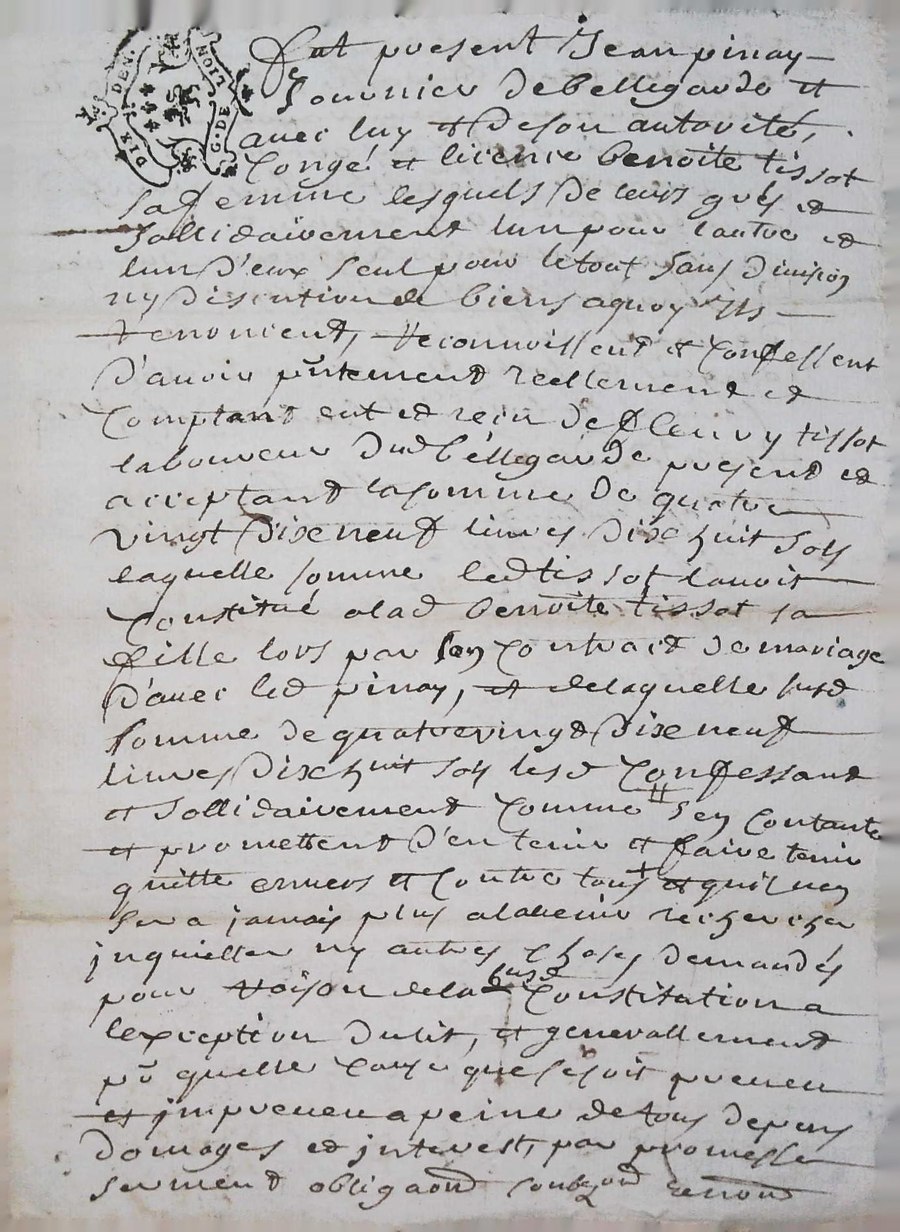 DIX DEN. G. DE LION
fut present Jean pinay
Journier de bellegarde et
avec luy et de son autorité,
Congé et licence benoite tissot
sa femme lesquels de leurs grés et
sollidairement lun pour lautre et
lun d'eux seul pour le tout sans division
ny discution de biens a quoy ils
renoncent, reconnoissent et confessent
d'avoir pntement reellement et
comptant eut et recu de fleury tissot
laboureur dud bellegarde present et
acceptant la somme de quatre
vingt dixe neuf livres dixe huit sols
laquelle somme led tissot lavoit
Constitué a lad benoite tissot sa
fille lors par son contract de mariage
d'avec led pinay, et de laquelle susd
somme de quatre vingt dixe neuf
livres dixe huit sols lesd confessant
et sollidairement comme s'en contante
et promettent d'en tenir et faire tenir
quitte envers et contre tous et quil nen
sera jamais plus a lavenir recherché
inquietter ny autres choses demandés
pour raison de la susd Constitution a
lexception du lit, et generallement
po quelle cause que se soit preveu
et impreveu a peine de tous depens
domages et interest, par promesse
serment obligaon renond